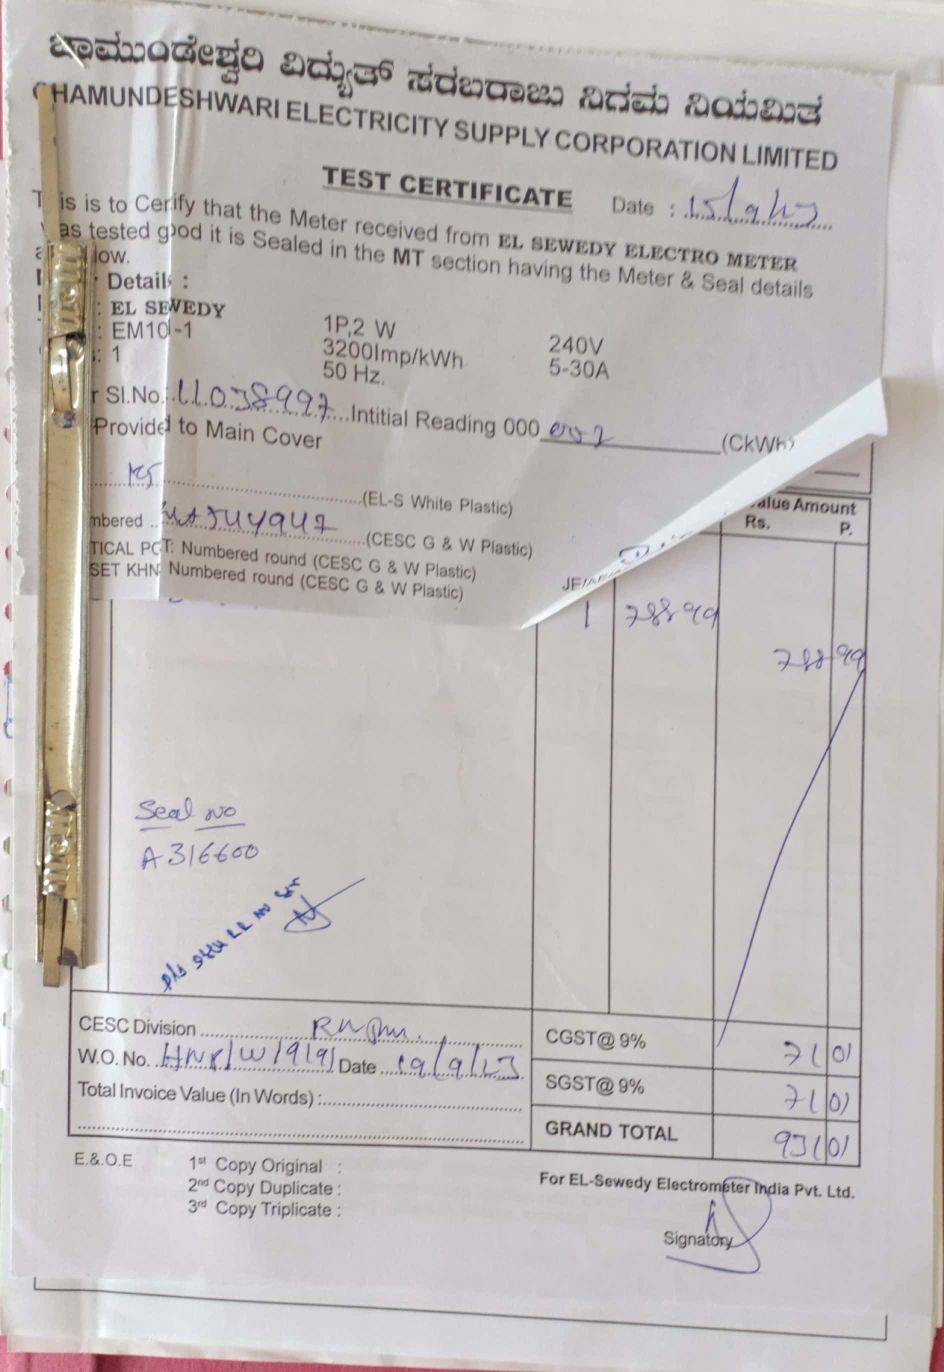 ಚಾಮುಂಡೇಶ್ವರಿ ವಿದ್ಯುತ್ ಸರಬರಾಜು ನಿಗಮ ನಿಯಮಿತ
CHAMUNDESHWARI ELECTRICITY SUPPLY CORPORATION LIMITED
TEST CERTIFICATE Date :
is is to Cerify that the Meter received from EL SEWEDY ELECTRO METER
as tested good it is Sealed in the MT section having the Meter & Seal details
low.
Details :
: EL SEWEDY
: EM10 -1 1P,2 W 240V
: 1 3200Imp/kWh 5-30A
50 Hz.
r Sl.No. 11038997 Intitial Reading 000 002 (CkWh)
Provided to Main Cover
(EL-S White Plastic)
mbered (CESC G & W Plastic)
TICAL PCT: Numbered round (CESC G & W Plastic)
SET KHN Numbered round (CESC G & W Plastic)
alue Amount
Rs. P.
1 788 99
788 99
Seal no
A 316600
CESC Division
W.O. No. Date 19/9/23
Total Invoice Value (In Words) :
CGST@ 9% 71 01
SGST@ 9% 71 01
GRAND TOTAL 931 01
E.& O.E
1st Copy Original :
2nd Copy Duplicate :
3rd Copy Triplicate :
For EL-Sewedy Electrometer India Pvt. Ltd.
Signatory